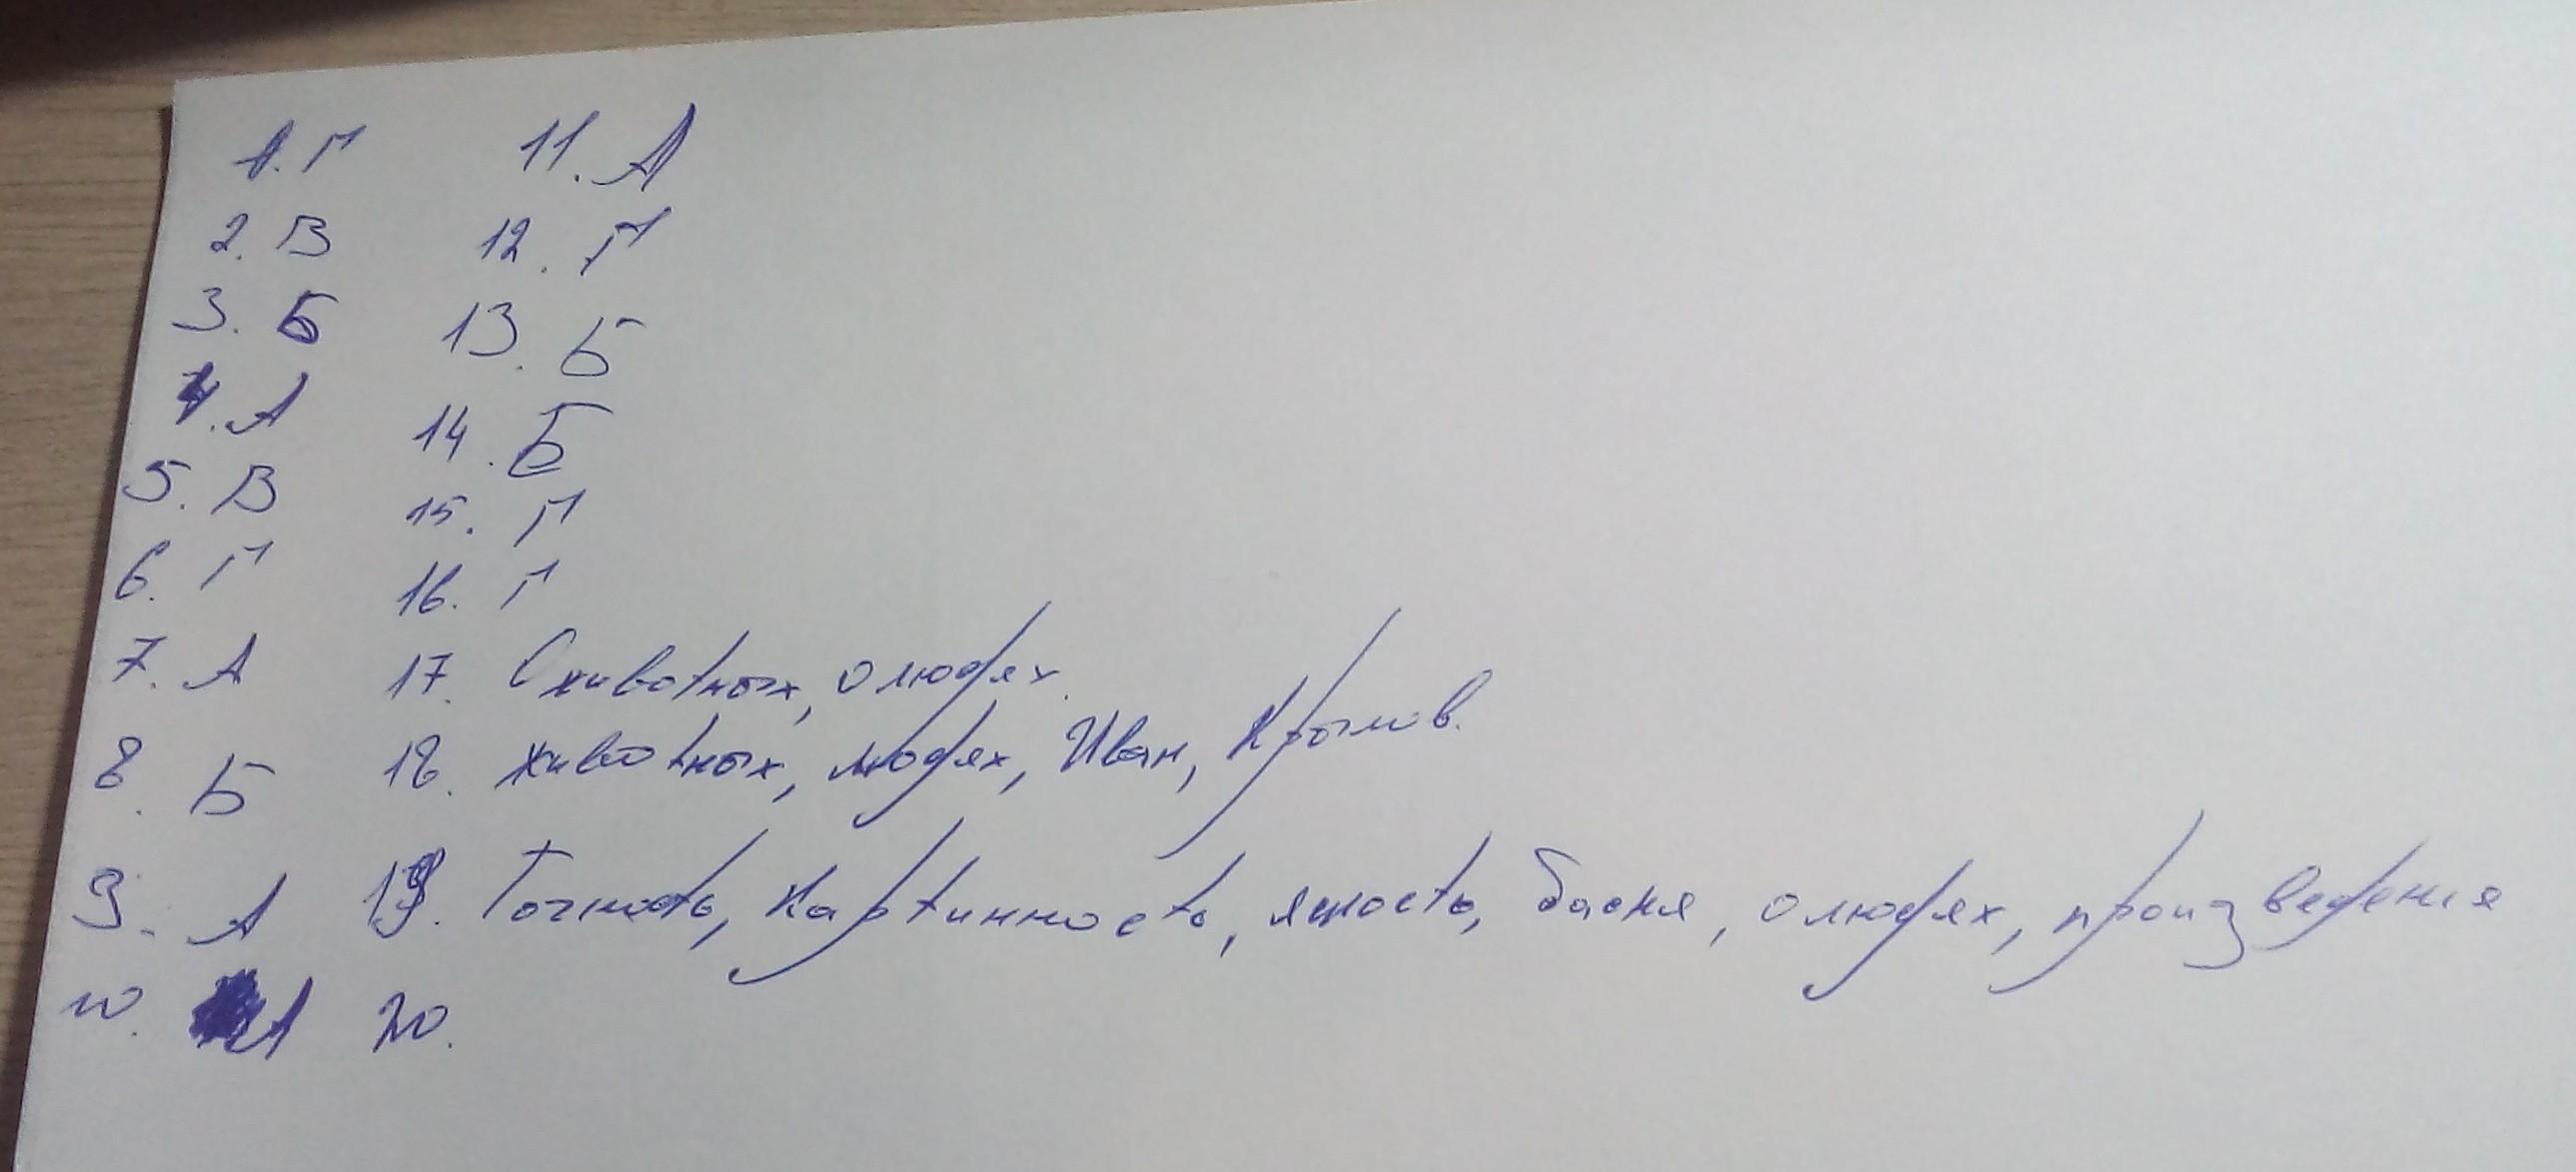 1. Г 11. А
2. В 12. Г
3. Б 13. Б
4. А 14. Б
5. В 15. Г
6. Г 16. Г
7. А 17. О животных, о людях.
8. Б 18. животных, людях, Иван, Крылов.
9. А 19. Точность, картинность, ясность, басня, о людях, произведения
10. А 20.